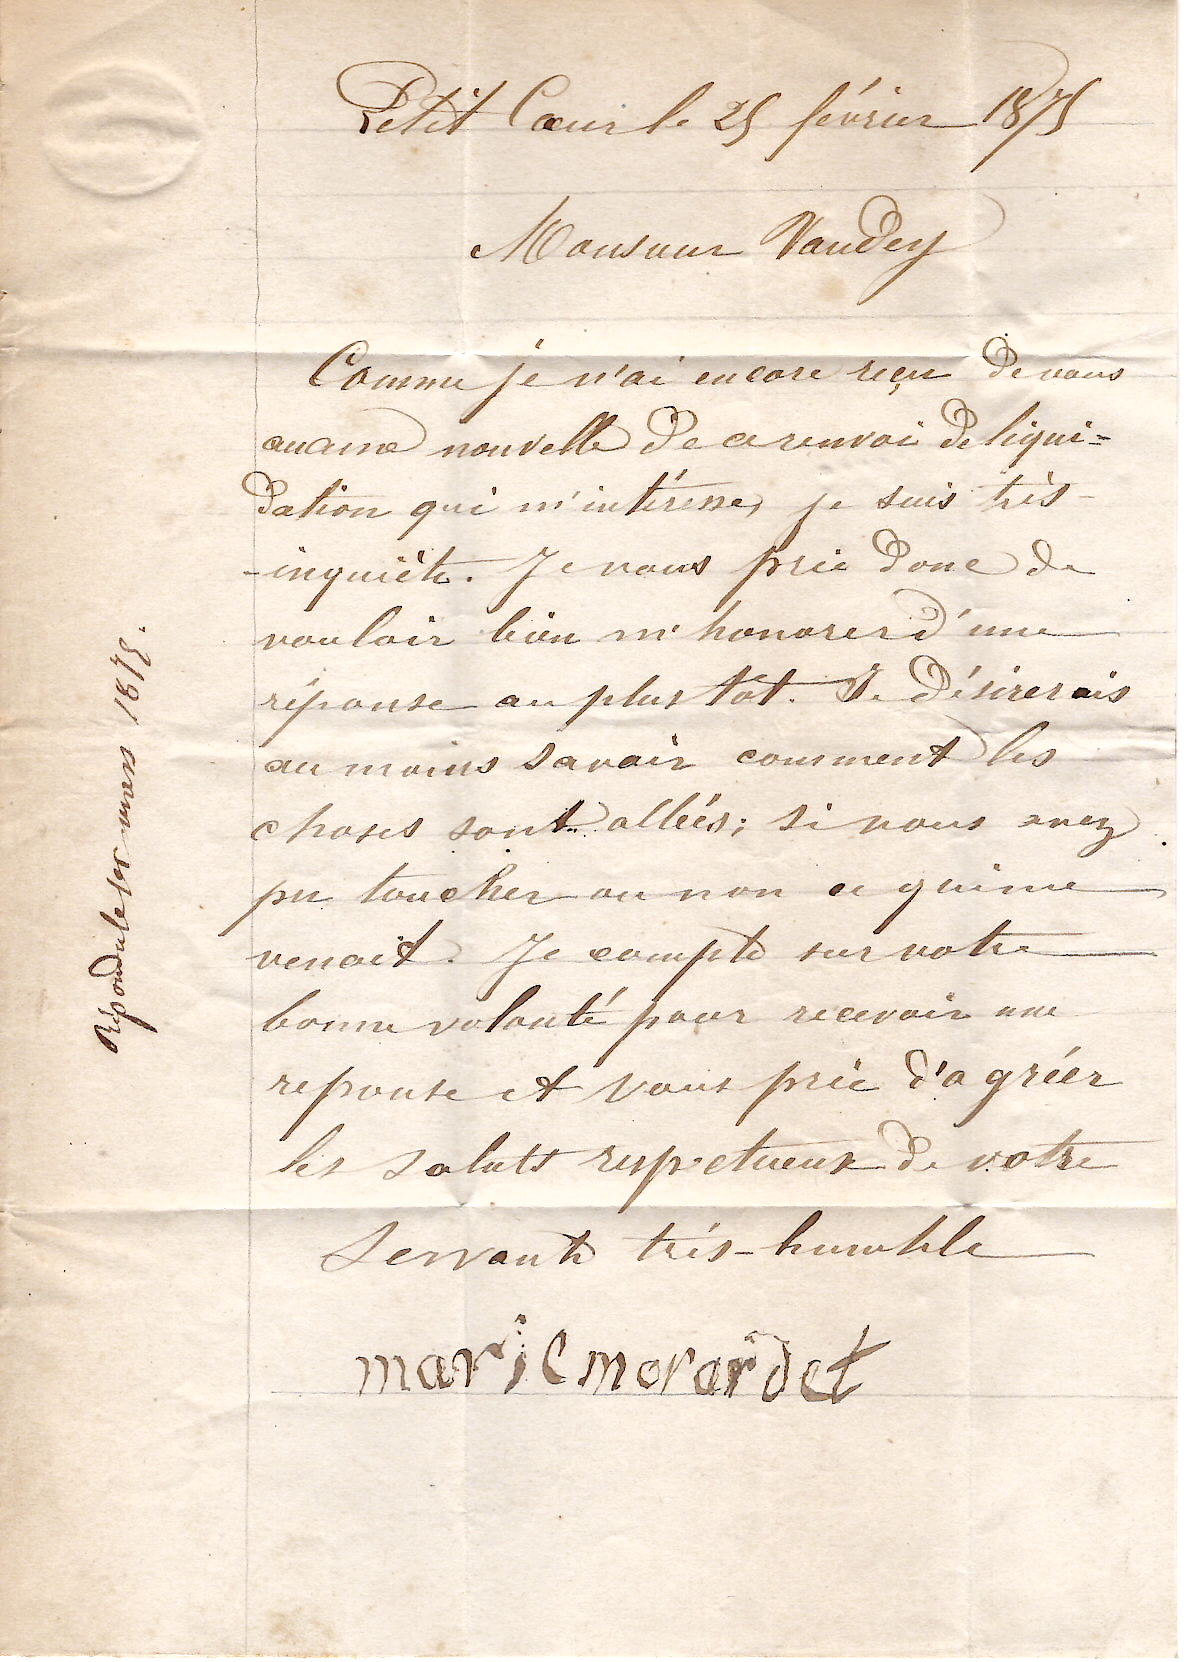 Petit Cœur le 25 février 1875
Monsieur Vaudey
Comme je n'ai encore reçu de vous
aucune nouvelle de ce renvoi de liqui-
dation qui m'intéresse, je suis très-
-inquiète. Je vous prie donc de
vouloir bien m'honorer d'une
réponse au plus tôt. Je désirerais
au moins savoir comment les
choses sont allées; si vous avez
pu toucher ou non ce qui me
venait. Je compte sur votre
bonne volonté pour recevoir une
reponse et vous prie d'agréer
les saluts respectueux de votre
Servante très-humble
marie morardet
Répondu le 1er mars 1875.